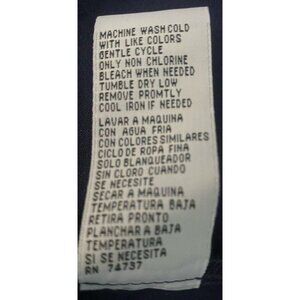 MACHINE WASH COLD
WITH LIKE COLORS
GENTLE CYCLE
ONLY NON CHLORINE
BLEACH WHEN NEEDED
TUMBLE DRY LOW
REMOVE PROMTLY
COOL IRON IF NEEDED
LAVAR A MAQUINA
CON AGUA FRIA
CON COLORES SIMILARES
CICLO DE ROPA FINA
SOLO BLANQUEADOR
SIN CLORO CUANDO
SE NECESITE
SECAR A MAQUINA
TEMPERATURA BAJA
RETIRA PRONTO
PLANCHAR A BAJA
TEMPERATURA
SI SE NECESITA
RN 74737